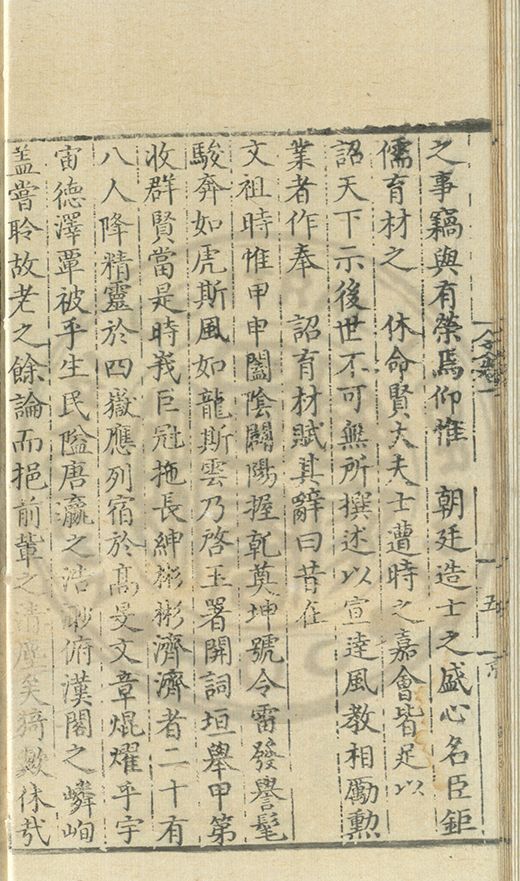 之事竊與有榮焉仰惟　朝廷造士之盛心名臣鉅
儒育材之　休命賢大夫士遭時之嘉會皆足以
詔天下示後世不可無所撰述以宣逹風教相勵勲
業者作奉　詔育材賦其辭曰昔在
文祖時惟甲申闔陰闢陽握乾奠坤號令雷發譽髦
駿奔如虎斯風如龍斯雲乃啓玉署開詞垣舉甲第
收群賢當是時峩巨冠拖長紳彬彬濟濟者二十有
八人降精靈於四嶽應列宿於髙旻文章焜燿乎宇
宙德澤覃被乎生民隘唐瀛之浩渺俯漢閣之嶙峋
盖嘗聆故老之餘論而挹前輩之清塵矣猗歟休㢤
五